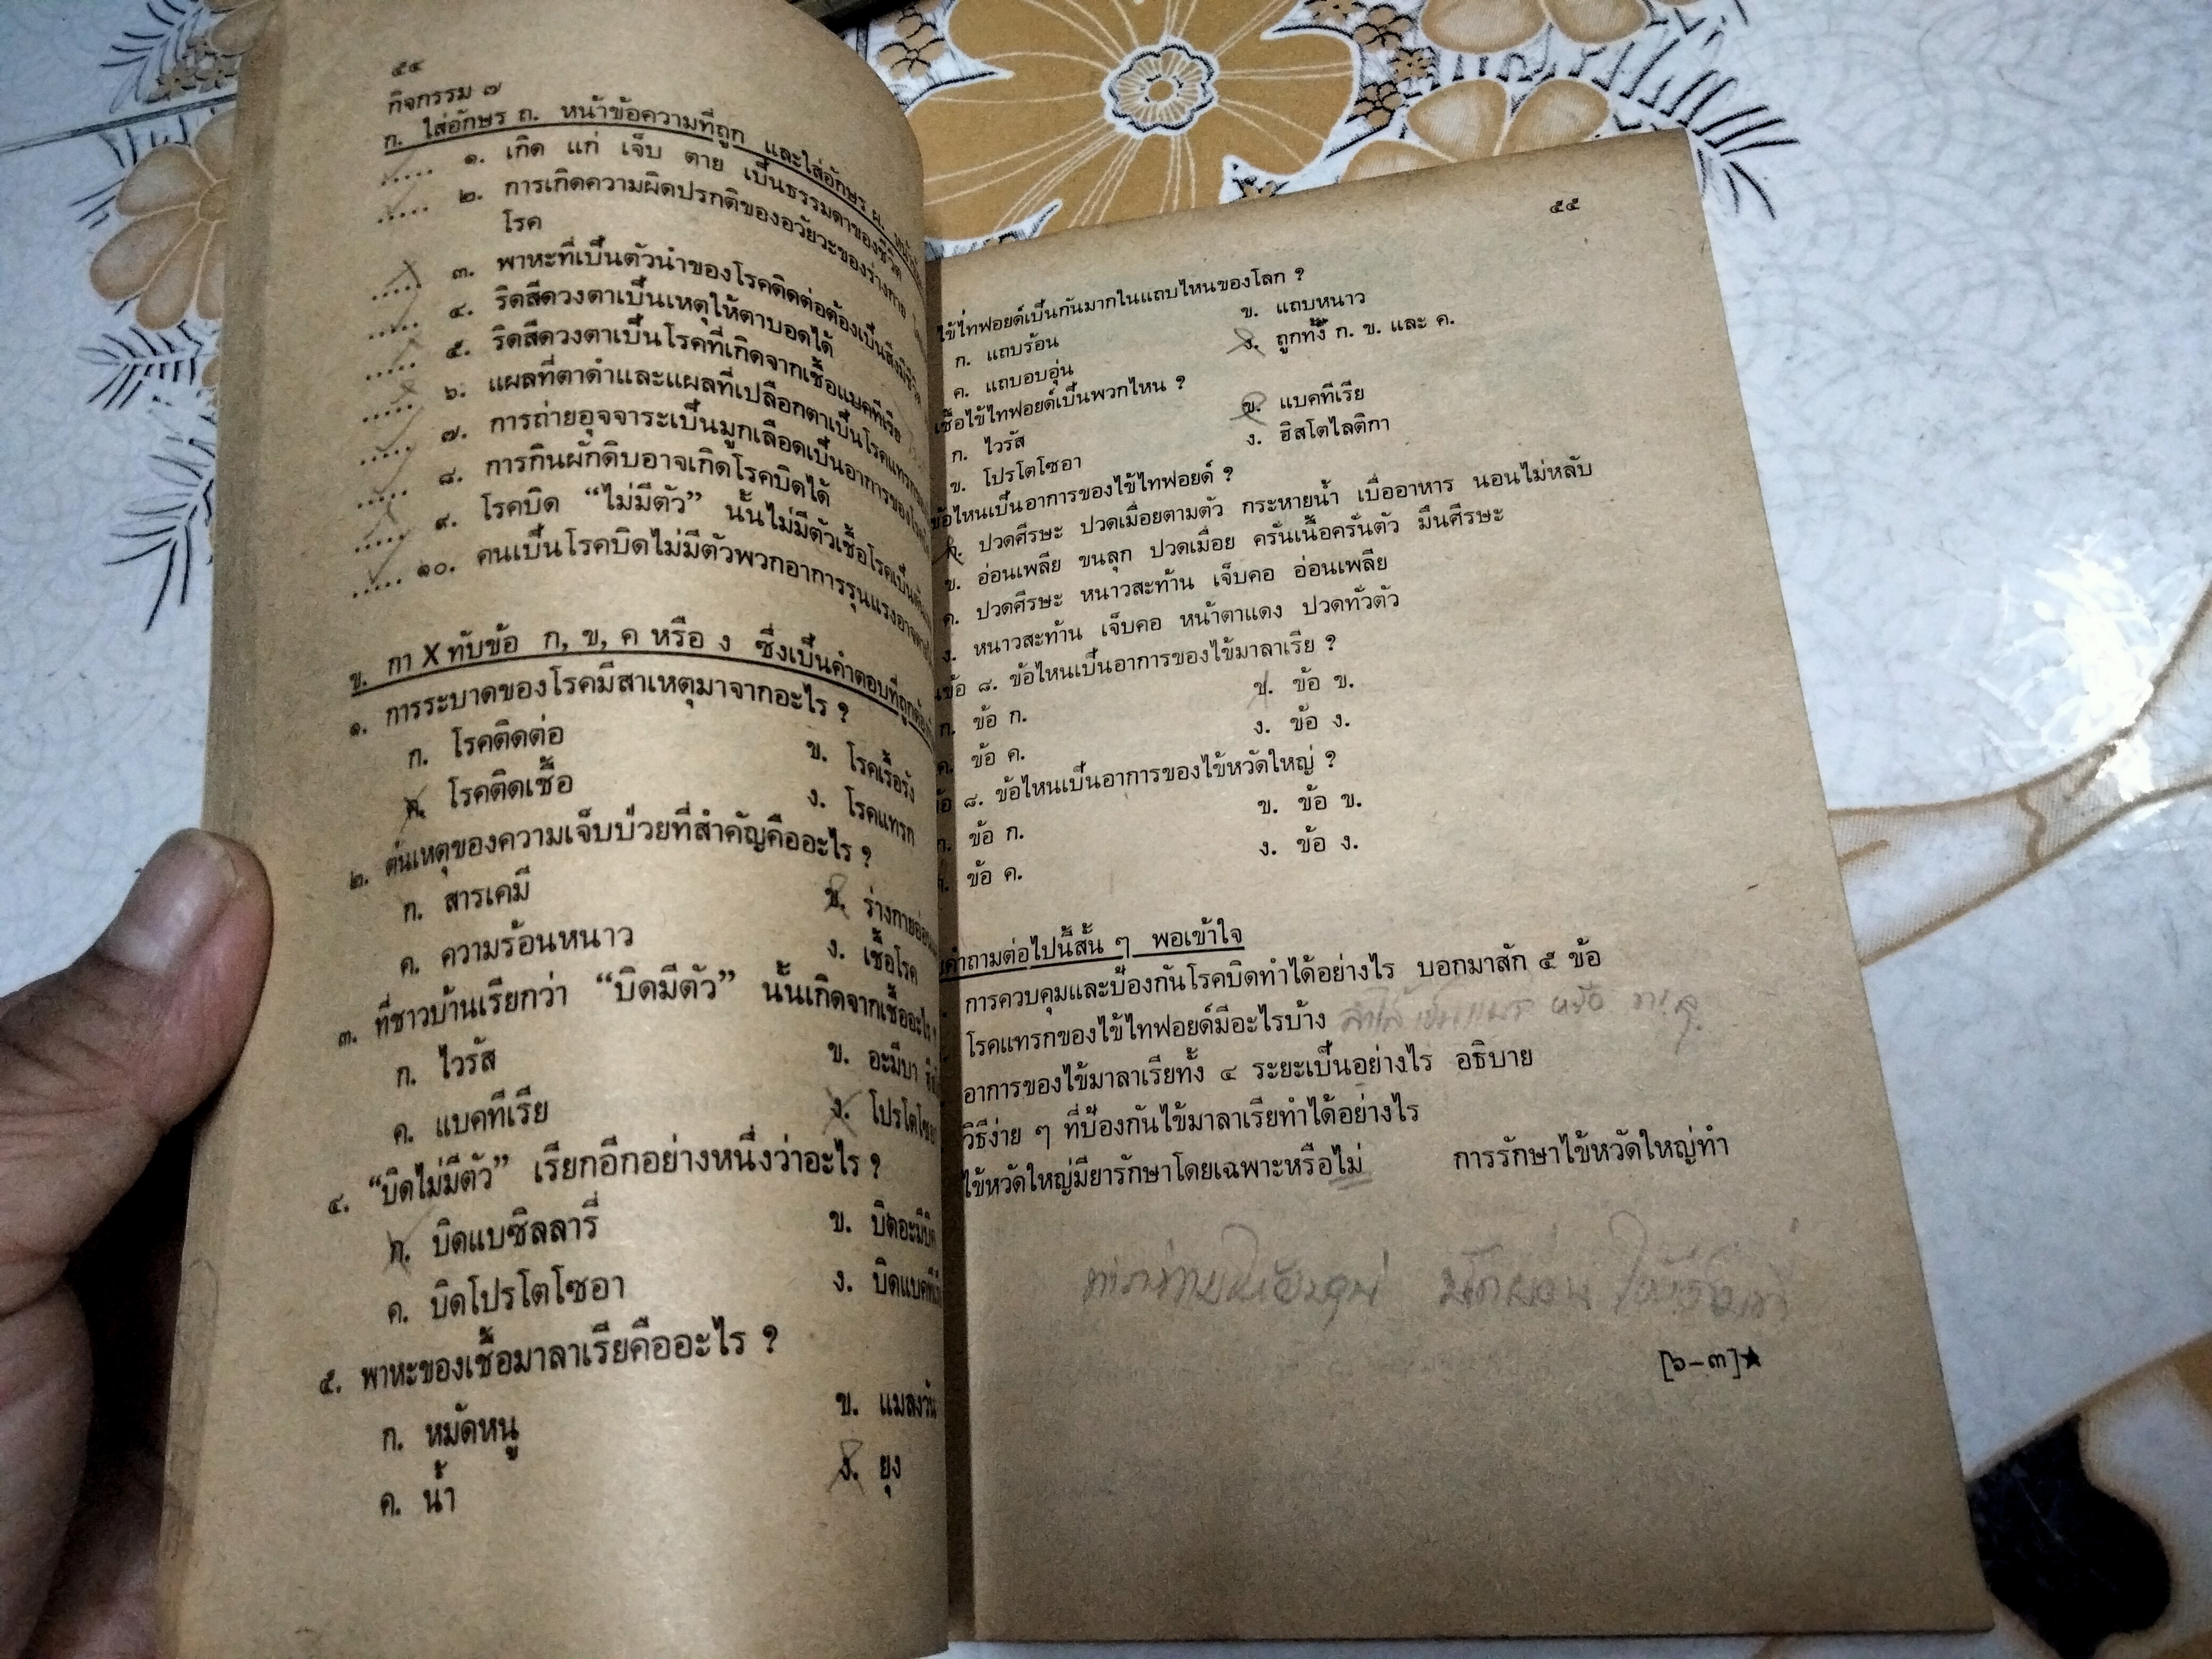 ๕๔
กิจกรรม ๗
ก. ใส่อักษร ถ. หน้าข้อความที่ถูก และใส่อักษร ผ.
..... ๑. เกิด แก่ เจ็บ ตาย เป็นธรรมดาของชีวิต
..... ๒. การเกิดความผิดปรกติของอวัยวะของร่างกาย
โรค
..... ๓. พาหะที่เป็นตัวนำของโรคติดต่อต้องเป็นสิ่งมีชีวิต
..... ๔. ริดสีดวงตาเป็นเหตุให้ตาบอดได้
..... ๕. ริดสีดวงตาเป็นโรคที่เกิดจากเชื้อแบคทีเรีย
..... ๖. แผลที่ตาดำและแผลที่เปลือกตาเป็นโรคแทรก
..... ๗. การถ่ายอุจจาระเป็นมูกเลือดเป็นอาการของ
..... ๘. การกินผักดิบอาจเกิดโรคบิดได้
..... ๙. โรคบิด “ไม่มีตัว” นั้นไม่มีตัวเชื้อโรคเป็น
..... ๑๐. คนเป็นโรคบิดไม่มีตัวพวกอาการรุนแรงอาจ
ข. กา X ทับข้อ ก, ข, ค หรือ ง ซึ่งเป็นคำตอบที่ถูกต้อง
๑. การระบาดของโรคมีสาเหตุมาจากอะไร ?
ก. โรคติดต่อ ข. โรคเรื้อรัง
ค. โรคติดเชื้อ ง. โรคแทรก
๒. ต้นเหตุของความเจ็บป่วยที่สำคัญคืออะไร ?
ก. สารเคมี ข. ร่างกายอ่อน
ค. ความร้อนหนาว ง. เชื้อโรค
๓. ที่ชาวบ้านเรียกว่า “บิดมีตัว” นั้นเกิดจากเชื้ออะไร ?
ก. ไวรัส ข. อะมีบา
ค. แบคทีเรีย ง. โปรโตโซอา
๔. “บิดไม่มีตัว” เรียกอีกอย่างหนึ่งว่าอะไร ?
ก. บิดแบซิลลารี่ ข. บิดอะมีบิค
ค. บิดโปรโตโซอา ง. บิดแบคทีเรีย
๕. พาหะของเชื้อมาลาเรียคืออะไร ?
ก. หมัดหนู ข. แมลงวัน
ค. น้ำ ง. ยุง
๕๕
ไข้ไทฟอยด์เป็นกันมากในแถบไหนของโลก ?
ก. แถบร้อน ข. แถบหนาว
ค. แถบอบอุ่น ง. ถูกทั้ง ก. ข. และ ค.
เชื้อไข้ไทฟอยด์เป็นพวกไหน ?
ก. ไวรัส ข. แบคทีเรีย
ข. โปรโตโซอา ง. ฮิสโตไลติกา
ข้อไหนเป็นอาการของไข้ไทฟอยด์ ?
ก. ปวดศีรษะ ปวดเมื่อยตามตัว กระหายน้ำ เบื่ออาหาร นอนไม่หลับ
ข. อ่อนเพลีย ขนลุก ปวดเมื่อย ครั่นเนื้อครั่นตัว มึนศีรษะ
ค. ปวดศีรษะ หนาวสะท้าน เจ็บคอ อ่อนเพลีย
ง. หนาวสะท้าน เจ็บคอ หน้าตาแดง ปวดทั่วตัว
ข้อ ๘. ข้อไหนเป็นอาการของไข้มาลาเรีย ?
ก. ข้อ ก. ข. ข้อ ข.
ค. ข้อ ค. ง. ข้อ ง.
ข้อ ๘. ข้อไหนเป็นอาการของไข้หวัดใหญ่ ?
ก. ข้อ ก. ข. ข้อ ข.
ข้อ ค. ง. ข้อ ง.
คำถามต่อไปนี้สั้น ๆ พอเข้าใจ
การควบคุมและป้องกันโรคบิดทำได้อย่างไร บอกมาสัก ๕ ข้อ
โรคแทรกของไข้ไทฟอยด์มีอะไรบ้าง
อาการของไข้มาลาเรียทั้ง ๔ ระยะเป็นอย่างไร อธิบาย
วิธีง่าย ๆ ที่ป้องกันไข้มาลาเรียทำได้อย่างไร
ไข้หวัดใหญ่มียารักษาโดยเฉพาะหรือไม่ การรักษาไข้หวัดใหญ่ทำ
[๖–๓]★